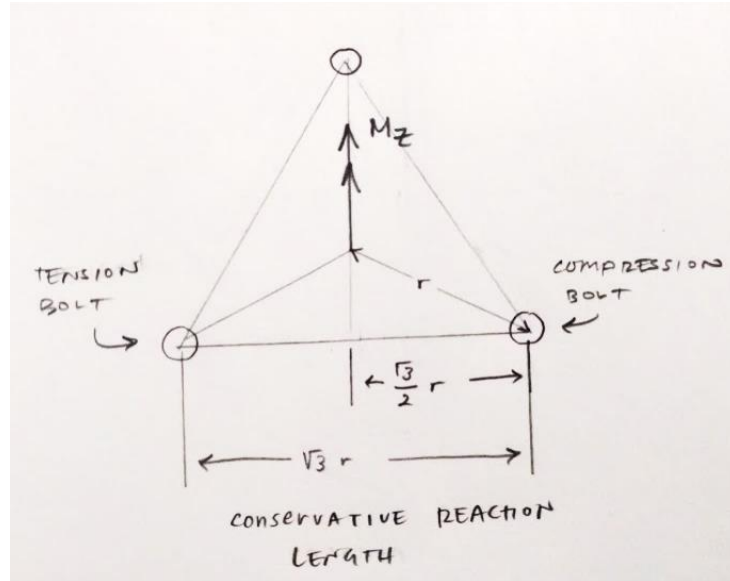 Mz
TENSION
BOLT
r
COMPRESSION
BOLT
√3/2 r
√3 r
CONSERVATIVE REACTION
LENGTH